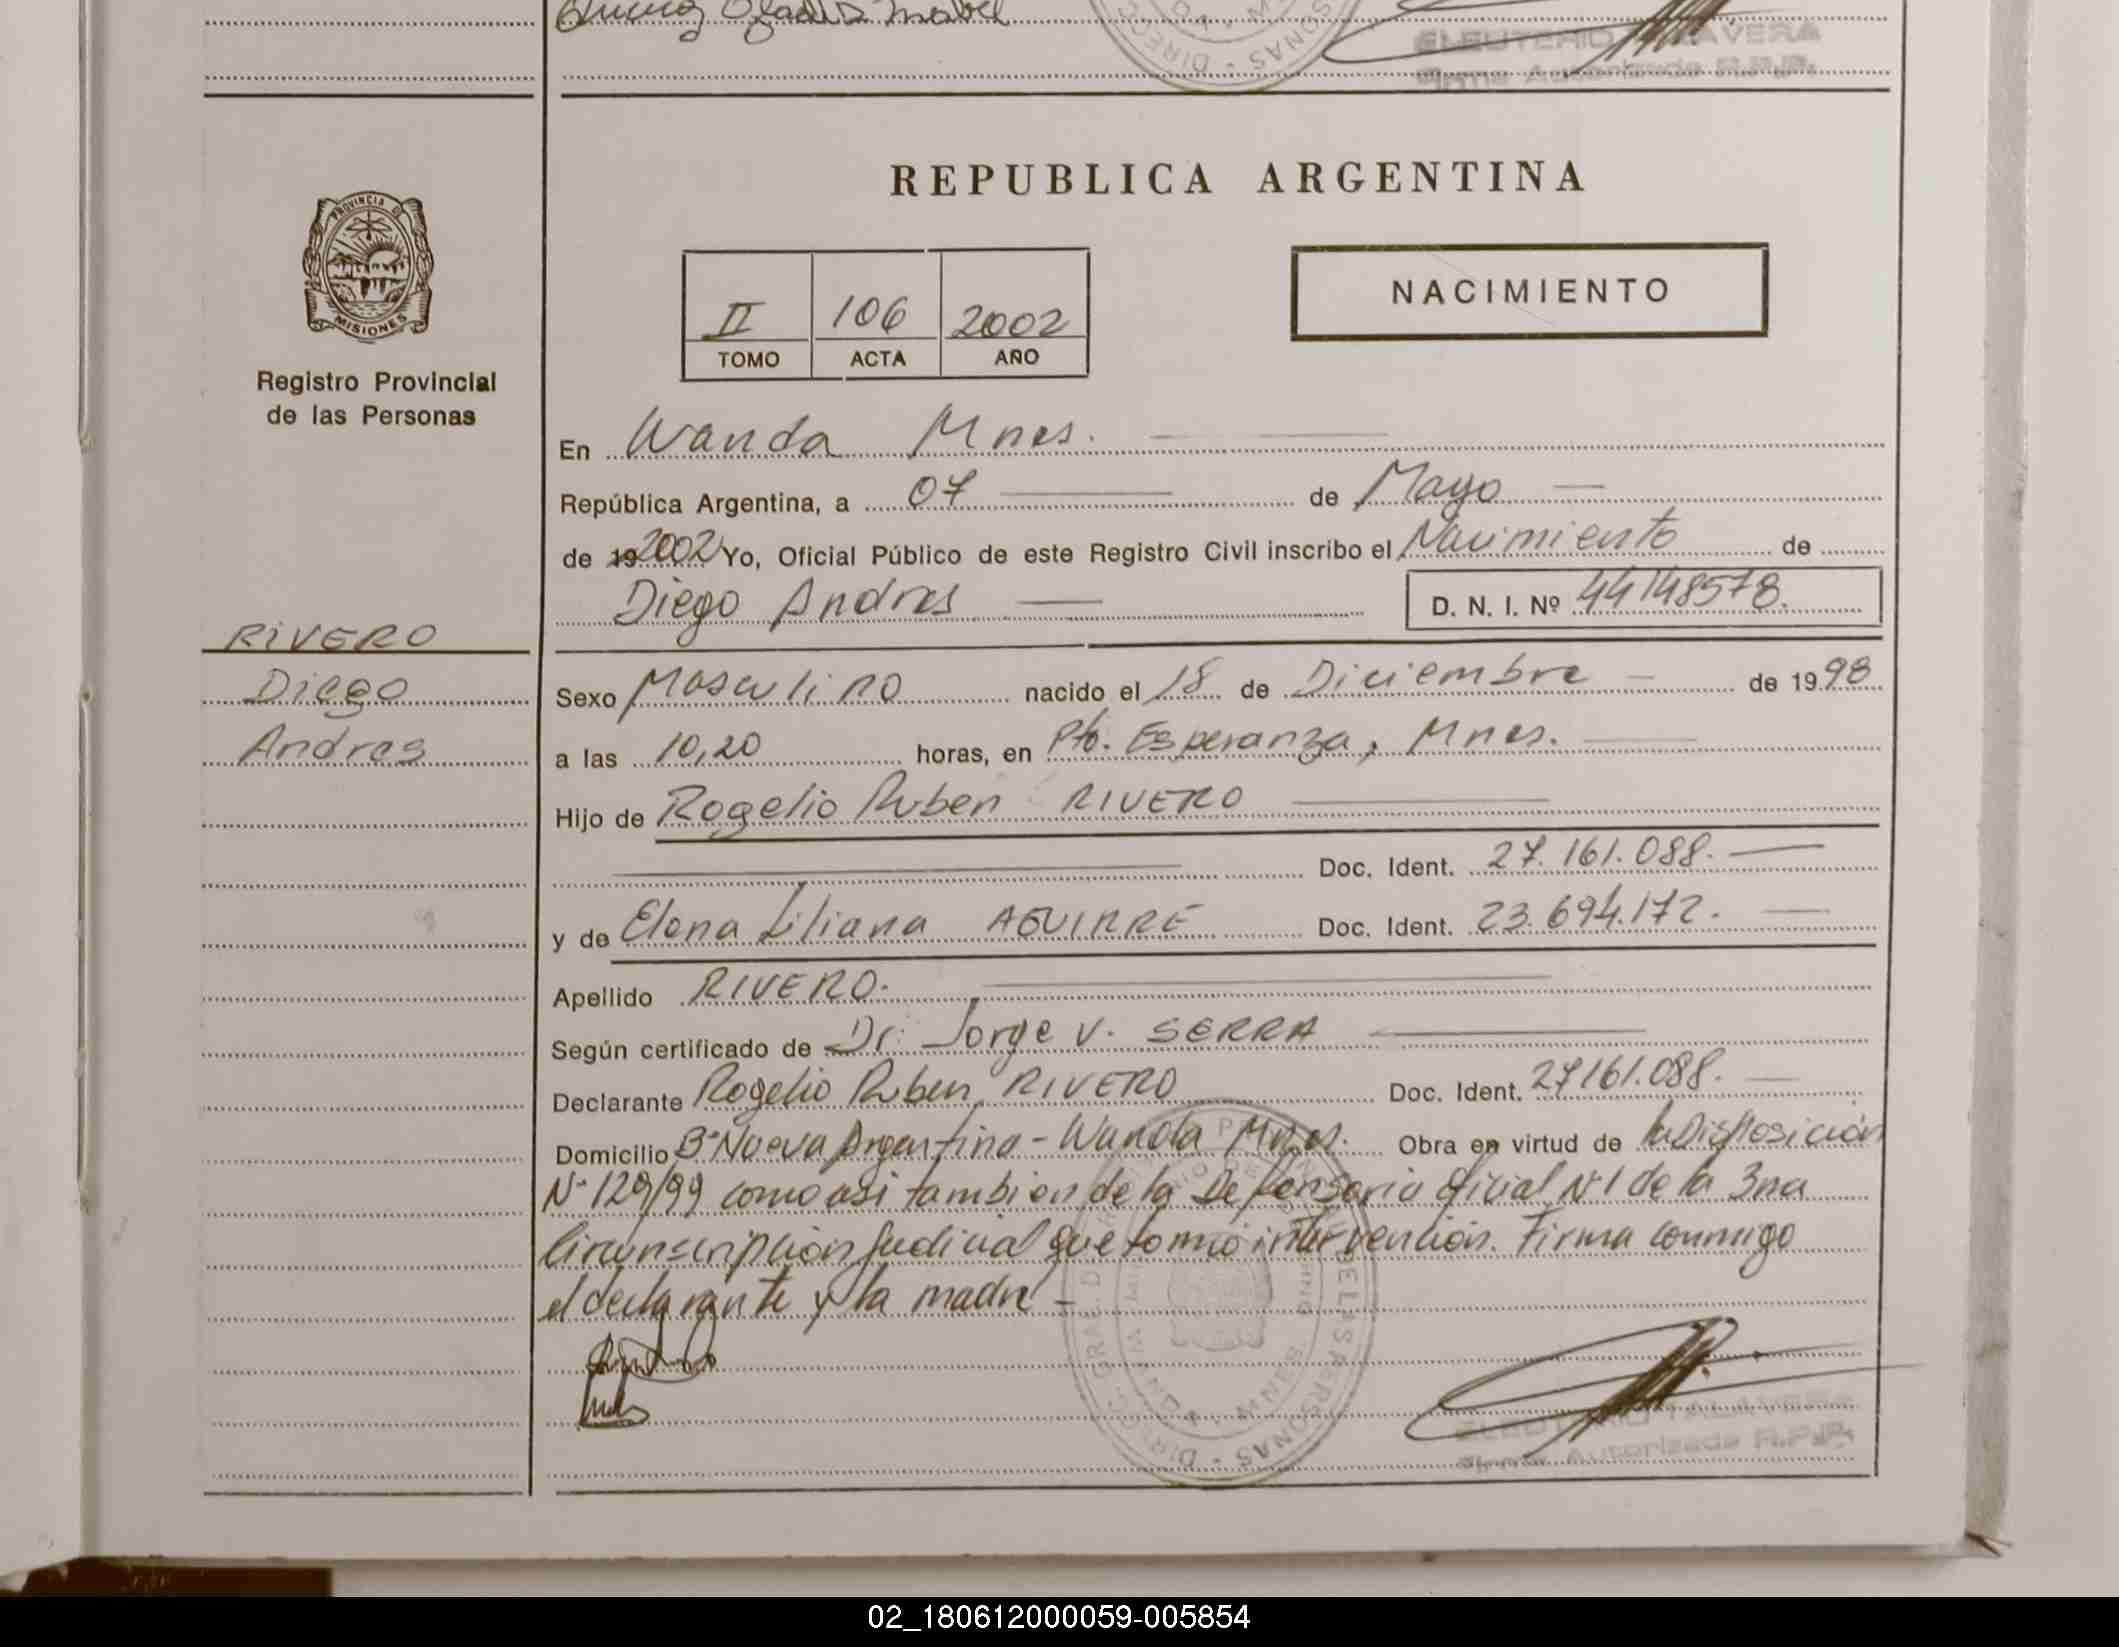 Gladis Mabel
ELEUTERIO TALAVERA
Firma Autorizada R.P.P.
REPUBLICA ARGENTINA
PROVINCIA DE
MISIONES
Registro Provincial
de las Personas
II 106 2002
TOMO ACTA AÑO
NACIMIENTO
En Wanda Mnes.
República Argentina, a 07 de Mayo
de 192002 Yo, Oficial Público de este Registro Civil inscribo el Nacimiento de
Diego Andres D. N. I. Nº 44148578.
RIVERO
Diego
Andres
Sexo Masculino nacido el 18 de Diciembre de 1998
a las 10,20 horas, en Pto. Esperanza, Mnes.
Hijo de Rogelio Ruben RIVERO
Doc. Ident. 27.161.088.
y de Elena Liliana AGUIRRE Doc. Ident. 23.694.172.
Apellido RIVERO.
Según certificado de Dr. Jorge V. SERRA
Declarante Rogelio Ruben RIVERO Doc. Ident. 27161.088.
Domicilio Bº Nueva Argentina - Wanda Mnes. Obra en virtud de la Disposición
Nº 129/99 como asi tambien de la Defensoria oficial Nº 1 de la 3ra
Circunscripción Judicial que tomo intervención. Firma conmigo
el declarante y la madre -
ELEUTERIO TALAVERA
Firma Autorizada R.P.P.
02_180612000059-005854